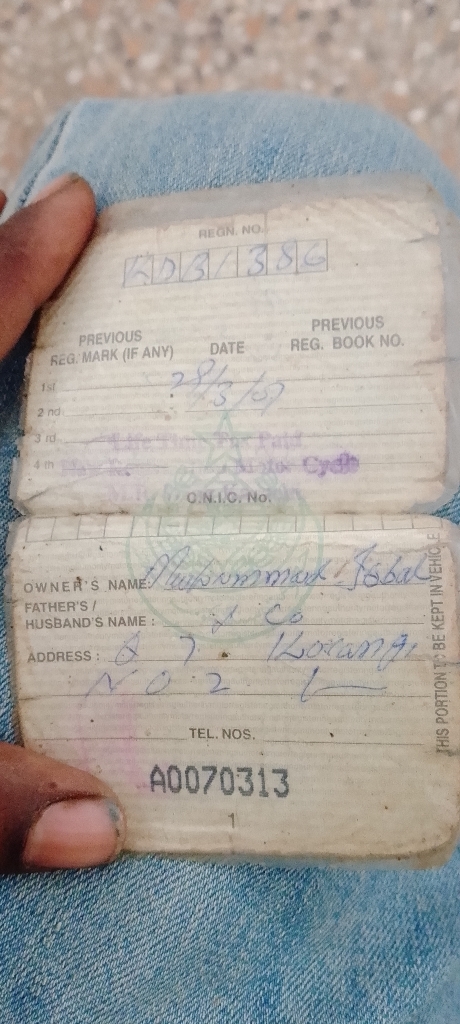 REGN. NO.
KDB1386
PREVIOUS REG. MARK (IF ANY) DATE PREVIOUS REG. BOOK NO.
1st 28/3/07
2nd
3rd Life Time Paid
4th Cycle
C.N.I.C. No.
OWNER'S NAME: Muhammad Iqbal
FATHER'S / HUSBAND'S NAME : & Co
ADDRESS : Q 7 Korangi
N O 2
TEL. NOS.
A0070313
1
THIS PORTION TO BE KEPT IN VEHICLE